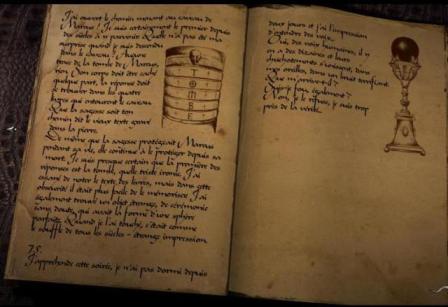 J'ai ouvert le chemin menant au caveau de
Marcus ! Je suis certainement le premier depuis
des siècles à y parvenir. Quelle n'a pas été ma
surprise quand je suis descendu
dans le caveau ! Aucune
trace de la tombe de Marcus,
rien. Son corps doit être caché
quelque part, la réponse doit
se trouver dans les quatre
livres qui entourent le caveau.
Que la sagesse soit ton
chemin dit le vieux texte gravé
dans la pierre.
De même que la sagesse protégeait Marcus
pendant sa vie, elle continue à le protéger depuis sa
mort. Je suis presque certain que la première des
réponses est la tombe, quelle triste ironie. J'ai
essayé de noter le texte des livres, mais dans cette
obscurité il était plus facile de le mémoriser. J'ai
également trouvé un objet étrange, de cérémonie
sans doute, qui avait la forme d'une sphère
parfaite. Quand je l'ai touché, c'était comme
le souffle de tous les siècles - étrange impression.
7.5.
J'appréhende cette soirée, je n'ai pas dormi depuis
TOMBE
deux jours et j'ai l'impression
d'entendre des voix.
Oui, des voix humaines, il y
en a des dizaines et leurs
chuchotements s'unissent, dans
mes oreilles, dans un bruit terrifiant.
Que m'arrive-t-il ?
Suis-je fou, également ?
Non, je le refuse, je suis trop
près de la vérité.